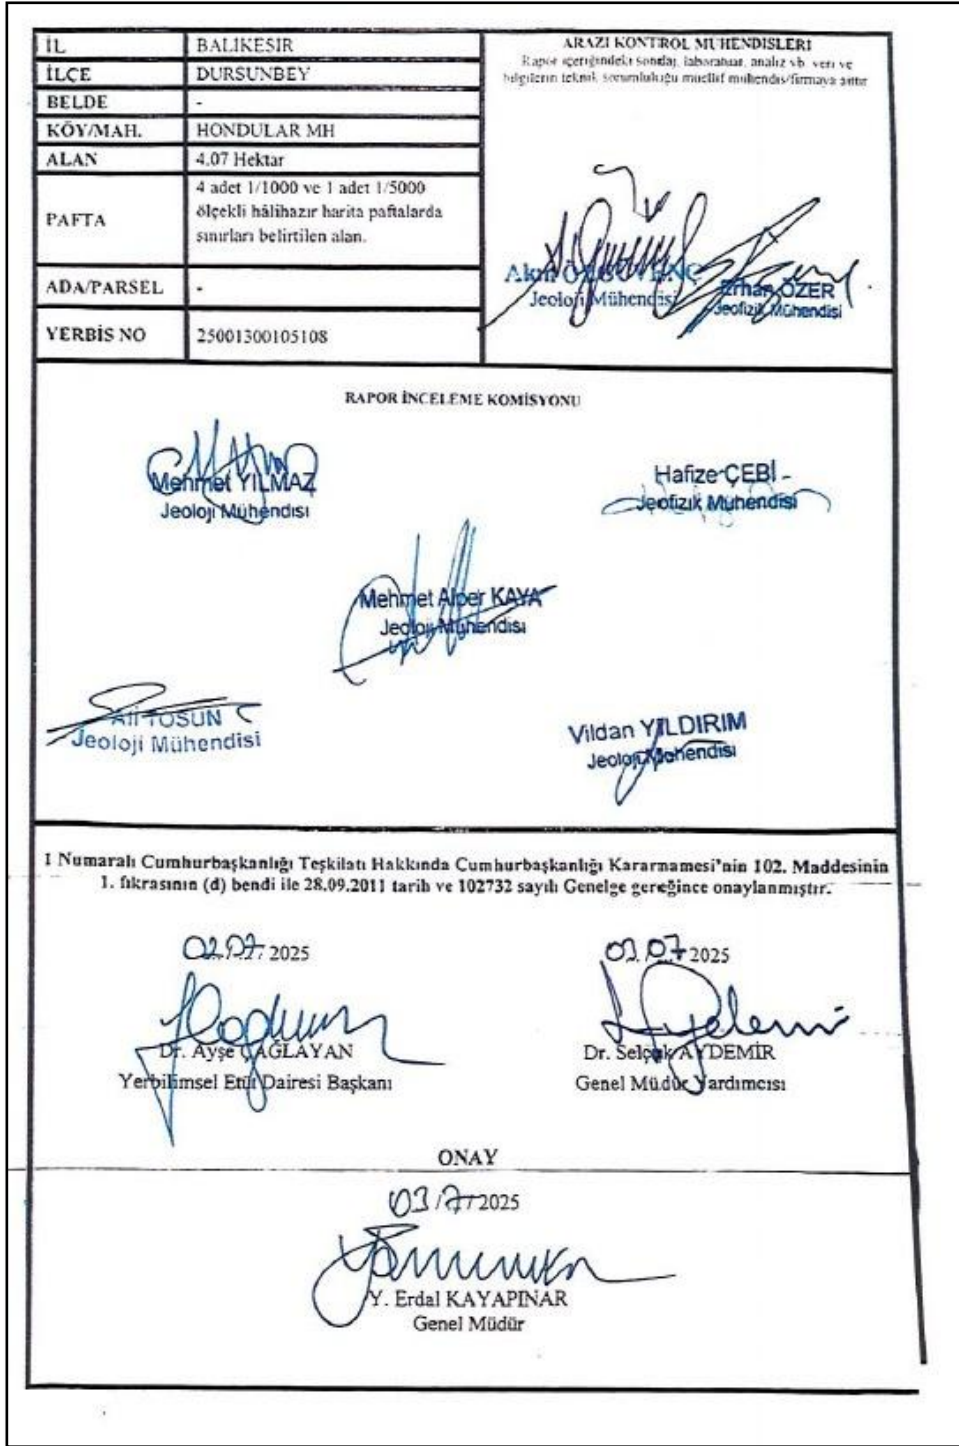 İL BALIKESİR
İLÇE DURSUNBEY
BELDE -
KÖY/MAH. HONDULAR MH
ALAN 4.07 Hektar
PAFTA 4 adet 1/1000 ve 1 adet 1/5000
ölçekli hâlihazır harita paftalarda
sınırları belirtilen alan.
ADA/PARSEL -
YERBİS NO 25001300105108
ARAZİ KONTROL MÜHENDİSLERİ
Rapor içeriğindeki sondaj, laboratuar, analiz vb. veri ve
bilgilerin teknik sorumluluğu müellif mühendis/firmaya aittir
Jeoloji Mühendisi
Erhan ÖZER
Jeofizik Mühendisi
RAPOR İNCELEME KOMİSYONU
Mehmet YILMAZ
Jeoloji Mühendisi
Hafize ÇEBİ
Jeofizik Mühendisi
Mehmet Alper KAYA
Jeoloji Mühendisi
Ali TOSUN
Jeoloji Mühendisi
Vildan YILDIRIM
Jeoloji Mühendisi
1 Numaralı Cumhurbaşkanlığı Teşkilatı Hakkında Cumhurbaşkanlığı Kararnamesi'nin 102. Maddesinin
1. fıkrasının (d) bendi ile 28.09.2011 tarih ve 102732 sayılı Genelge gereğince onaylanmıştır.
02.07.2025
Dr. Ayşe ÇAĞLAYAN
Yerbilimsel Etüt Dairesi Başkanı
03.07.2025
Dr. Selçuk AYDEMİR
Genel Müdür Yardımcısı
ONAY
03/7/2025
Y. Erdal KAYAPINAR
Genel Müdür